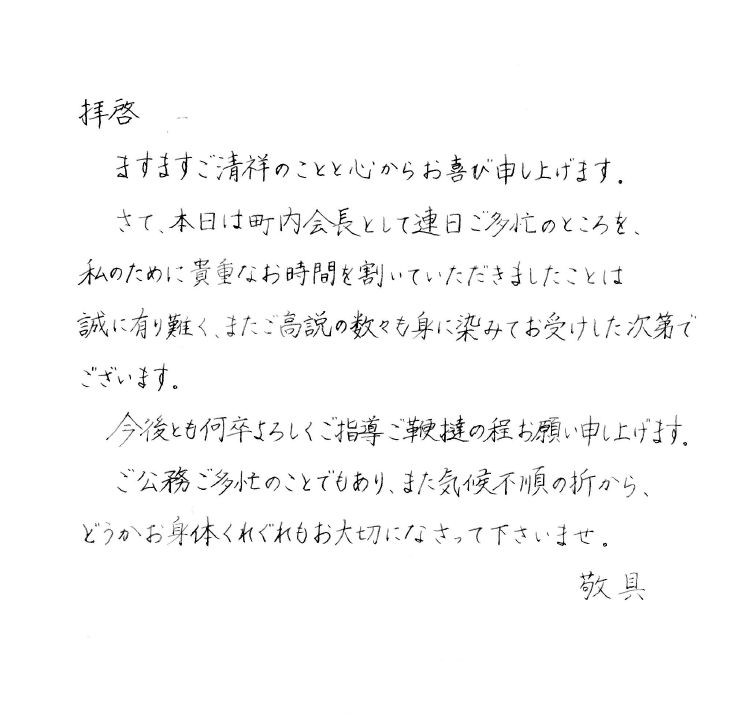 拝啓
ますますご清祥のことと心からお喜び申し上げます。
さて、本日は町内会長として連日ご多忙のところを、
私のために貴重なお時間を割いていただきましたことは
誠に有り難く、またご高説の数々も身に染みてお受けした次第で
ございます。
今後とも何卒よろしくご指導ご鞭撻の程お願い申し上げます。
ご公務ご多忙のことでもあり、また気候不順の折から、
どうかお身体くれぐれもお大切になさって下さいませ。
敬具